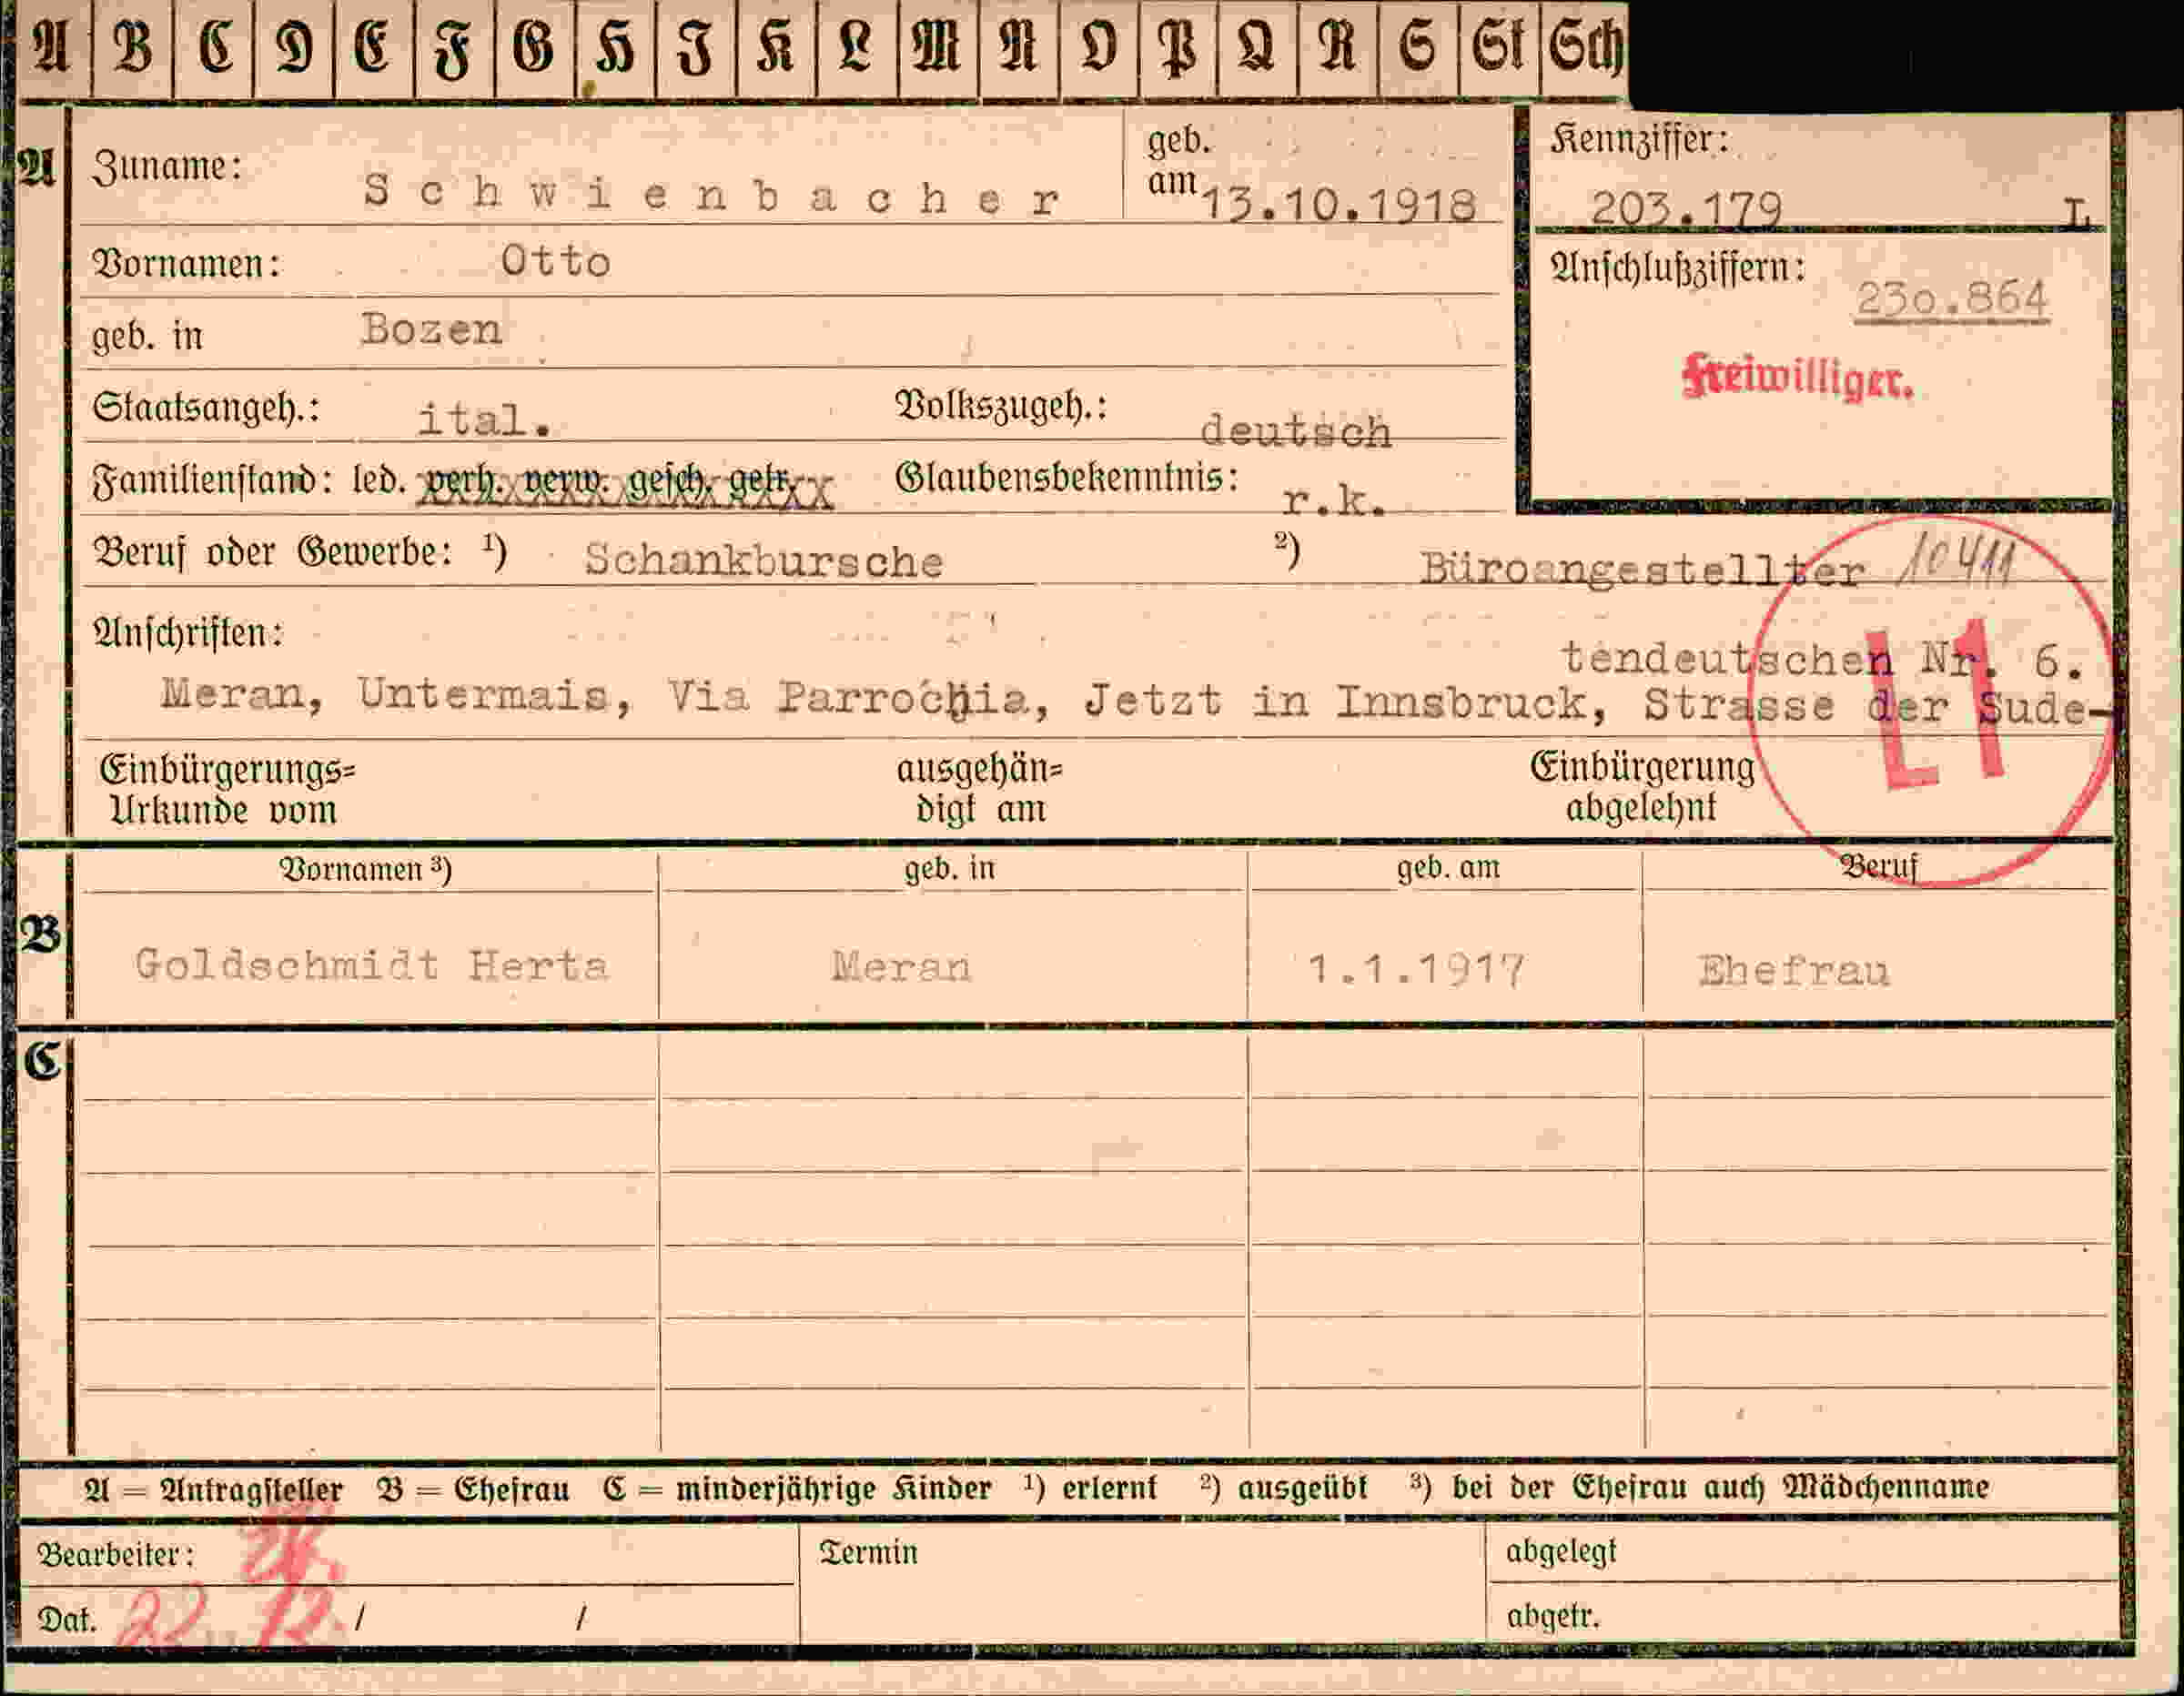 A B C D E F G H I K L M N O P Q R S St Sch
A Zuname: Schwienbacher geb. am 13.10.1918
Kennziffer: 203.179 L
Vornamen: Otto
Anschlußziffern: 23o.864
geb. in Bozen
Freiwilliger.
Staatsangeh.: ital. Volkszugeh.: deutsch
Familienstand: led. verh. verw. gesch. getr. Glaubensbekenntnis: r.k.
Beruf oder Gewerbe: ¹) Schankbursche ²) Büroangestellter 10411
Anschriften:
tendeutschen Nr. 6.
Meran, Untermais, Via Parrochia, Jetzt in Innsbruck, Strasse der Sude-
L1
Einbürgerungs= ausgehän= Einbürgerung
Urkunde vom digt am abgelehnt
Vornamen ³) geb. in geb. am Beruf
B Goldschmidt Herta Meran 1.1.1917 Ehefrau
C
A = Antragsteller B = Ehefrau C = minderjährige Kinder ¹) erlernt ²) ausgeübt ³) bei der Ehefrau auch Mädchenname
Bearbeiter: Termin abgelegt
Dat. 22 12. / / abgetr.